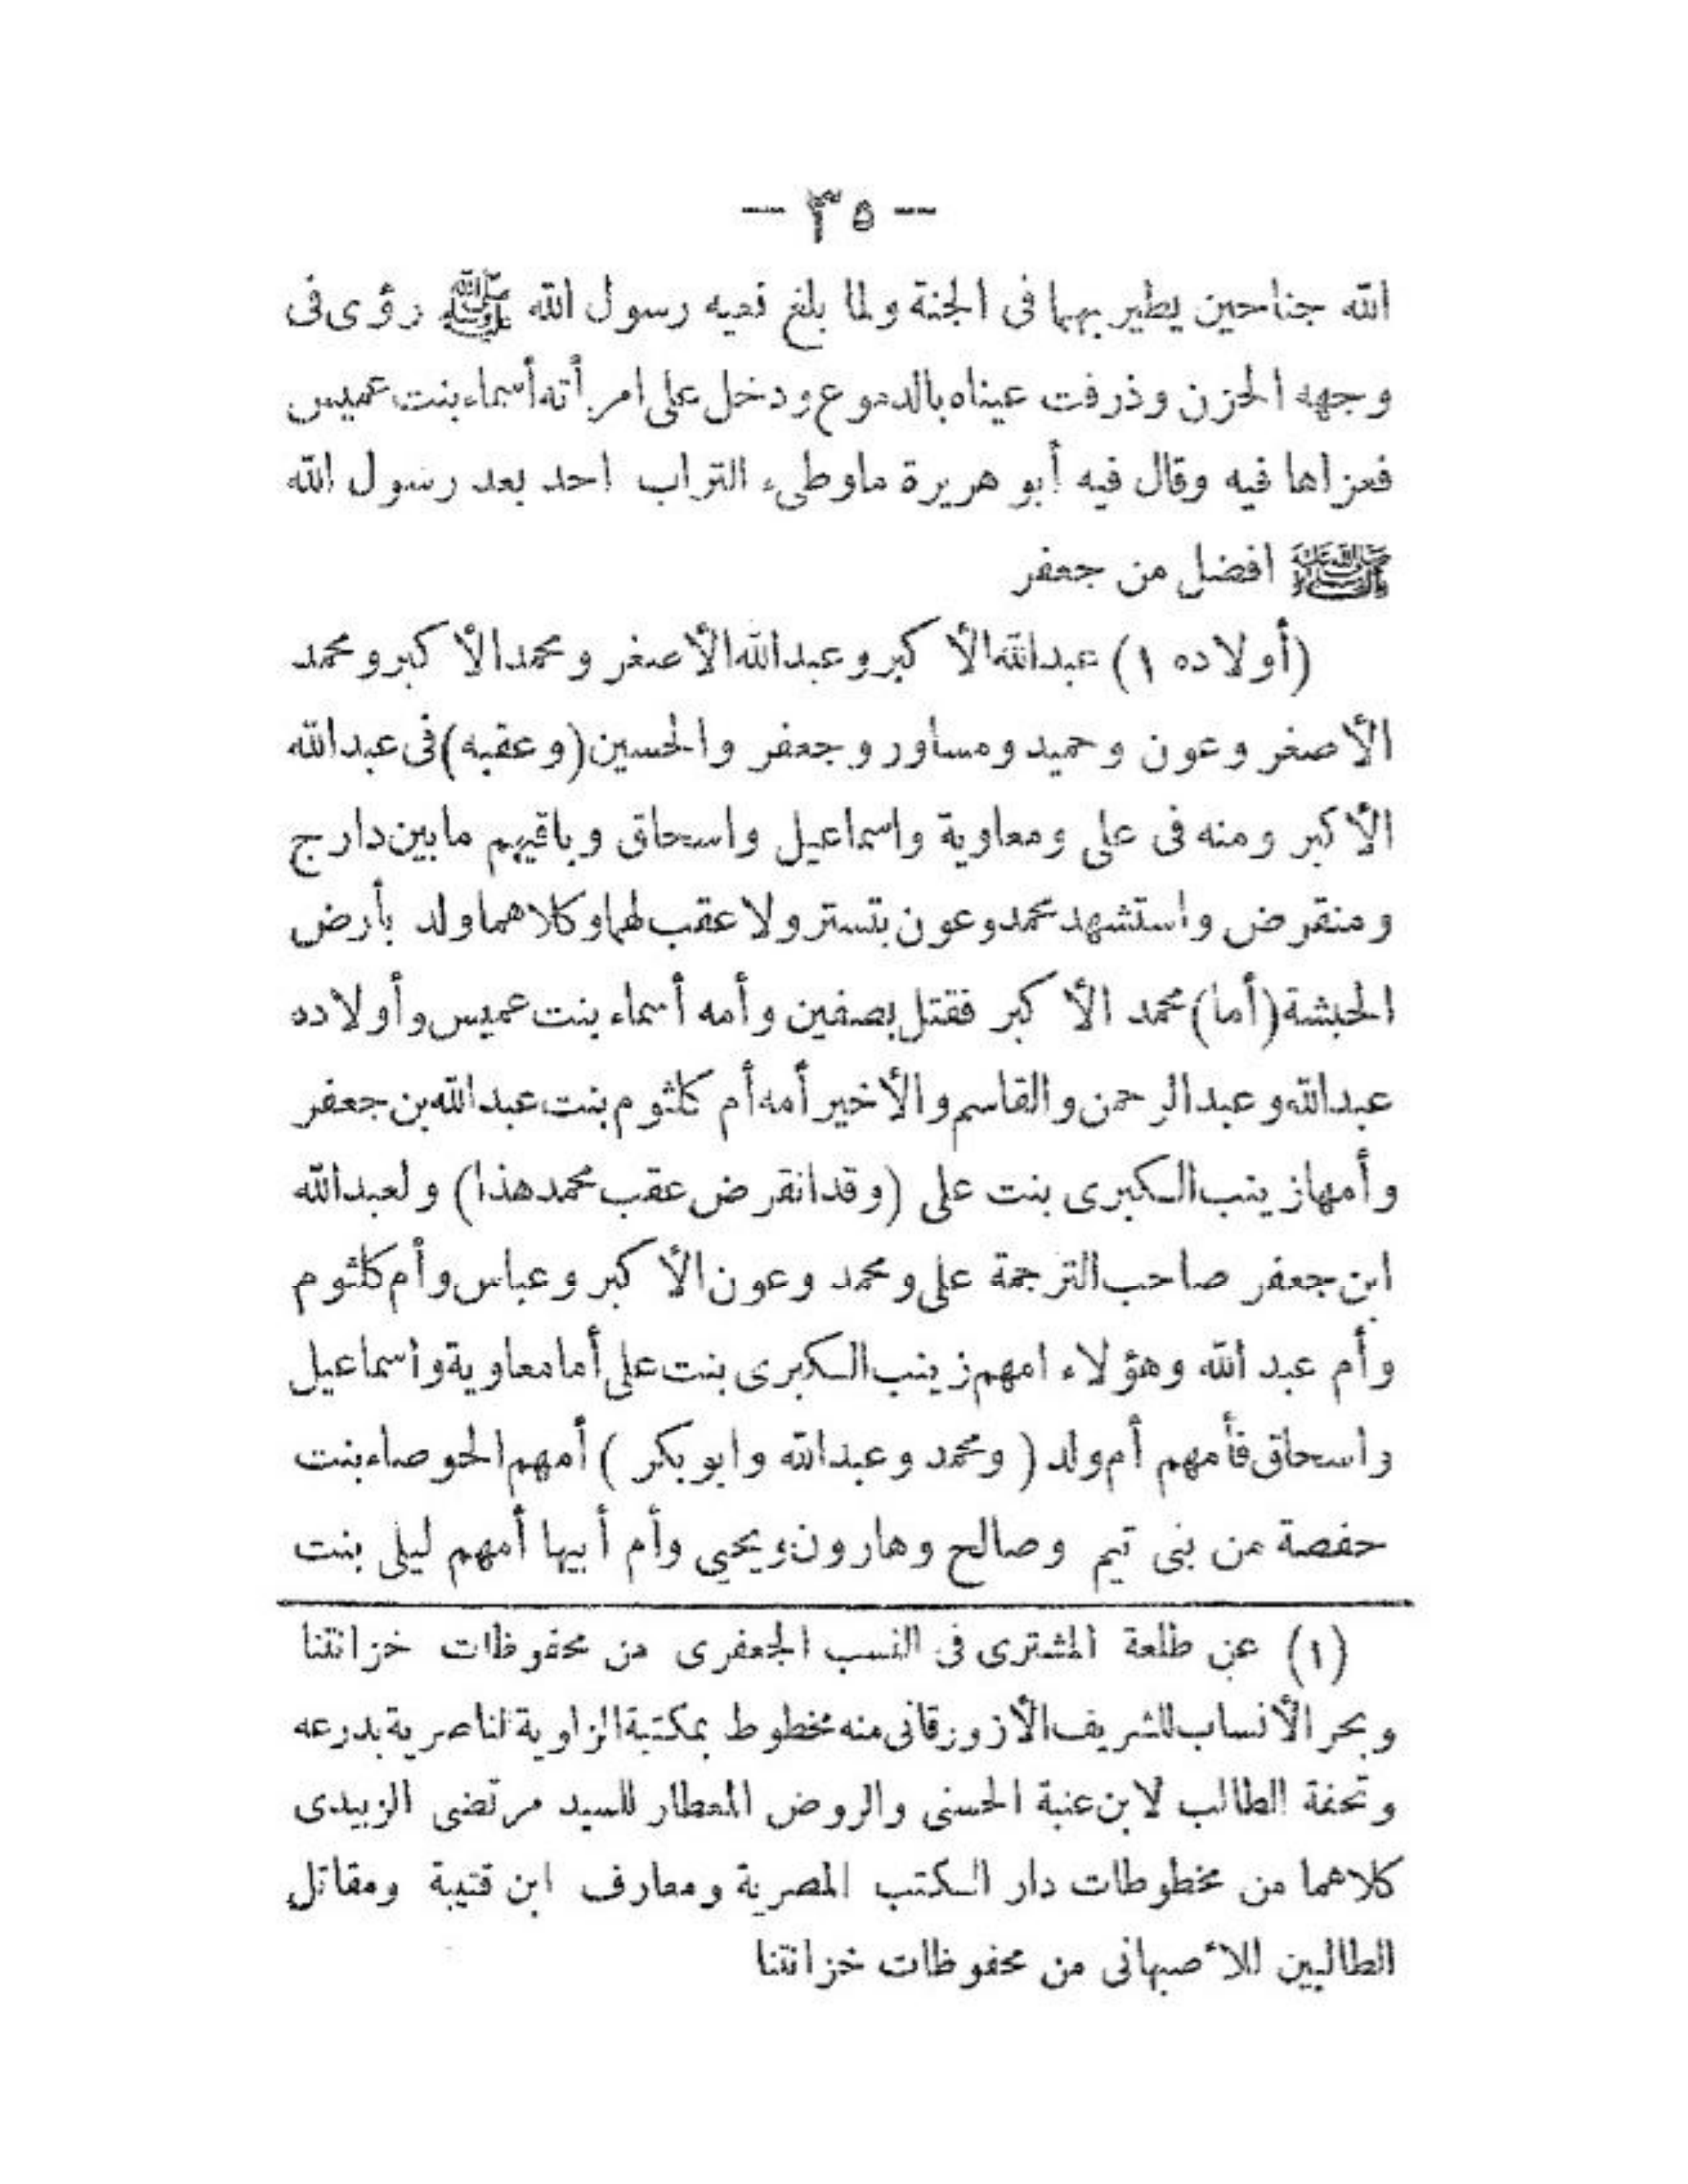 — ٣٥ —
الله جناحين يطير بهما فى الجنة ولما بلغ نعيه رسول الله ﷺ رؤى فى
وجهه الحزن وذرفت عيناه بالدموع ودخل على امرأته أسماء بنت عميس
فعزاها فيه وقال فيه أبو هريرة ما وطىء التراب احد بعد رسول الله
ﷺ افضل من جعفر
(أولاده ١) عبدالله الأكبر وعبدالله الأصغر ومحمد الأكبر ومحمد
الأصغر وعون وحميد ومساور وجعفر والحسين (وعقبه) فى عبدالله
الأكبر ومنه فى على ومعاوية واسماعيل واسحاق وباقيهم مابين دارج
ومنقرض واستشهد محمد وعون بتستر ولا عقب لهما وكلاهما ولد بأرض
الحبشة (أما) محمد الأكبر فقتل بصفين وأمه أسماء بنت عميس وأولاده
عبدالله وعبدالرحمن والقاسم والأخير أمه أم كلثوم بنت عبدالله بن جعفر
وأمها زينب الكبرى بنت على (وقد انقرض عقب محمد هذا) ولعبدالله
ابن جعفر صاحب الترجمة على ومحمد وعون الأكبر وعباس وأم كلثوم
وأم عبد الله وهؤلاء امهم زينب الكبرى بنت على أما معاوية واسماعيل
واسحاق فأمهم أم ولد ( ومحمد وعبدالله وابو بكر ) أمهم الحوصاء بنت
حفصة من بنى تيم وصالح وهارون ويحيي وأم أبيها أمهم ليلى بنت
(١) عن طلعة المشترى فى النسب الجعفرى من محفوظات خزانتنا
وبحر الأنساب للشريف الأزورقانى منه مخطوط بمكتبة الزاوية الناصرية بدرعه
وتحفة الطالب لابن عنبة الحسنى والروض المعطار للسيد مرتضى الزبيدى
كلاهما من مخطوطات دار الكتب المصرية ومعارف ابن قتيبة ومقاتل
الطالبين للأصبهانى من محفوظات خزانتنا